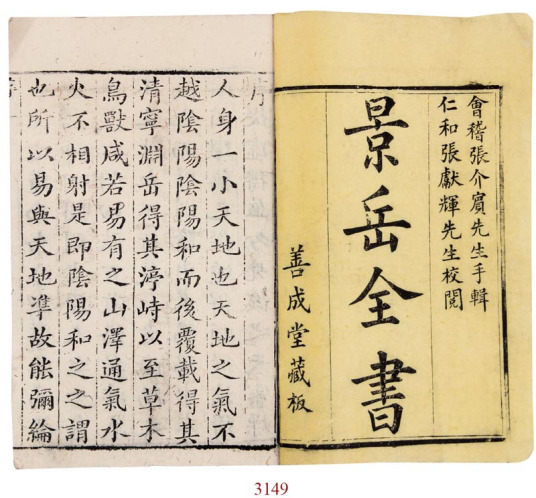 會稽張介賓先生手輯
仁和張獻輝先生校閱
景岳全書
善成堂藏板
序
人身一小天地也天地之氣不
越陰陽陰陽和而後覆載得其
清寧淵岳得其渟峙以至草木
鳥獸咸若易有之山澤通氣水
火不相射是即陰陽和之之謂
也所以易與天地準故能彌綸
3149